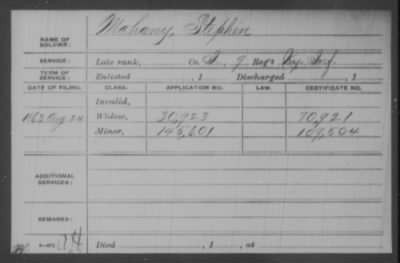 Mahany, Stephen
NAME OF SOLDIER:
SERVICE: Late rank, Co. I, 9 Reg't Ky. Inf.
TERM OF SERVICE: Enlisted , 1 Discharged , 1
DATE OF FILING. CLASS. APPLICATION NO. LAW. CERTIFICATE NO.
Invalid,
1863 Aug 24 Widow, 30,923 70,921
Minor, 145,601 109,504
ADDITIONAL SERVICES:
REMARKS:
Died , 1 , at